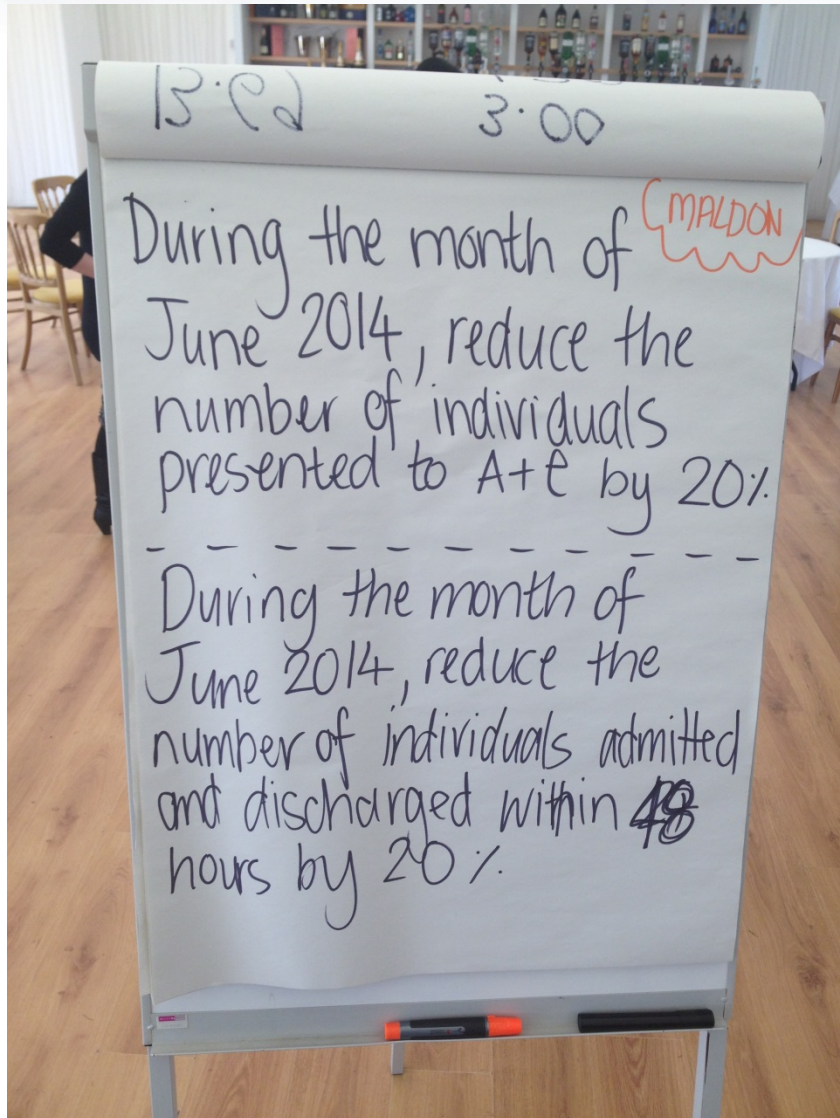 3.00
MALDON
During the month of
June 2014, reduce the
number of individuals
presented to A+E by 20%
During the month of
June 2014, reduce the
number of individuals admitted
and discharged within 48
hours by 20%